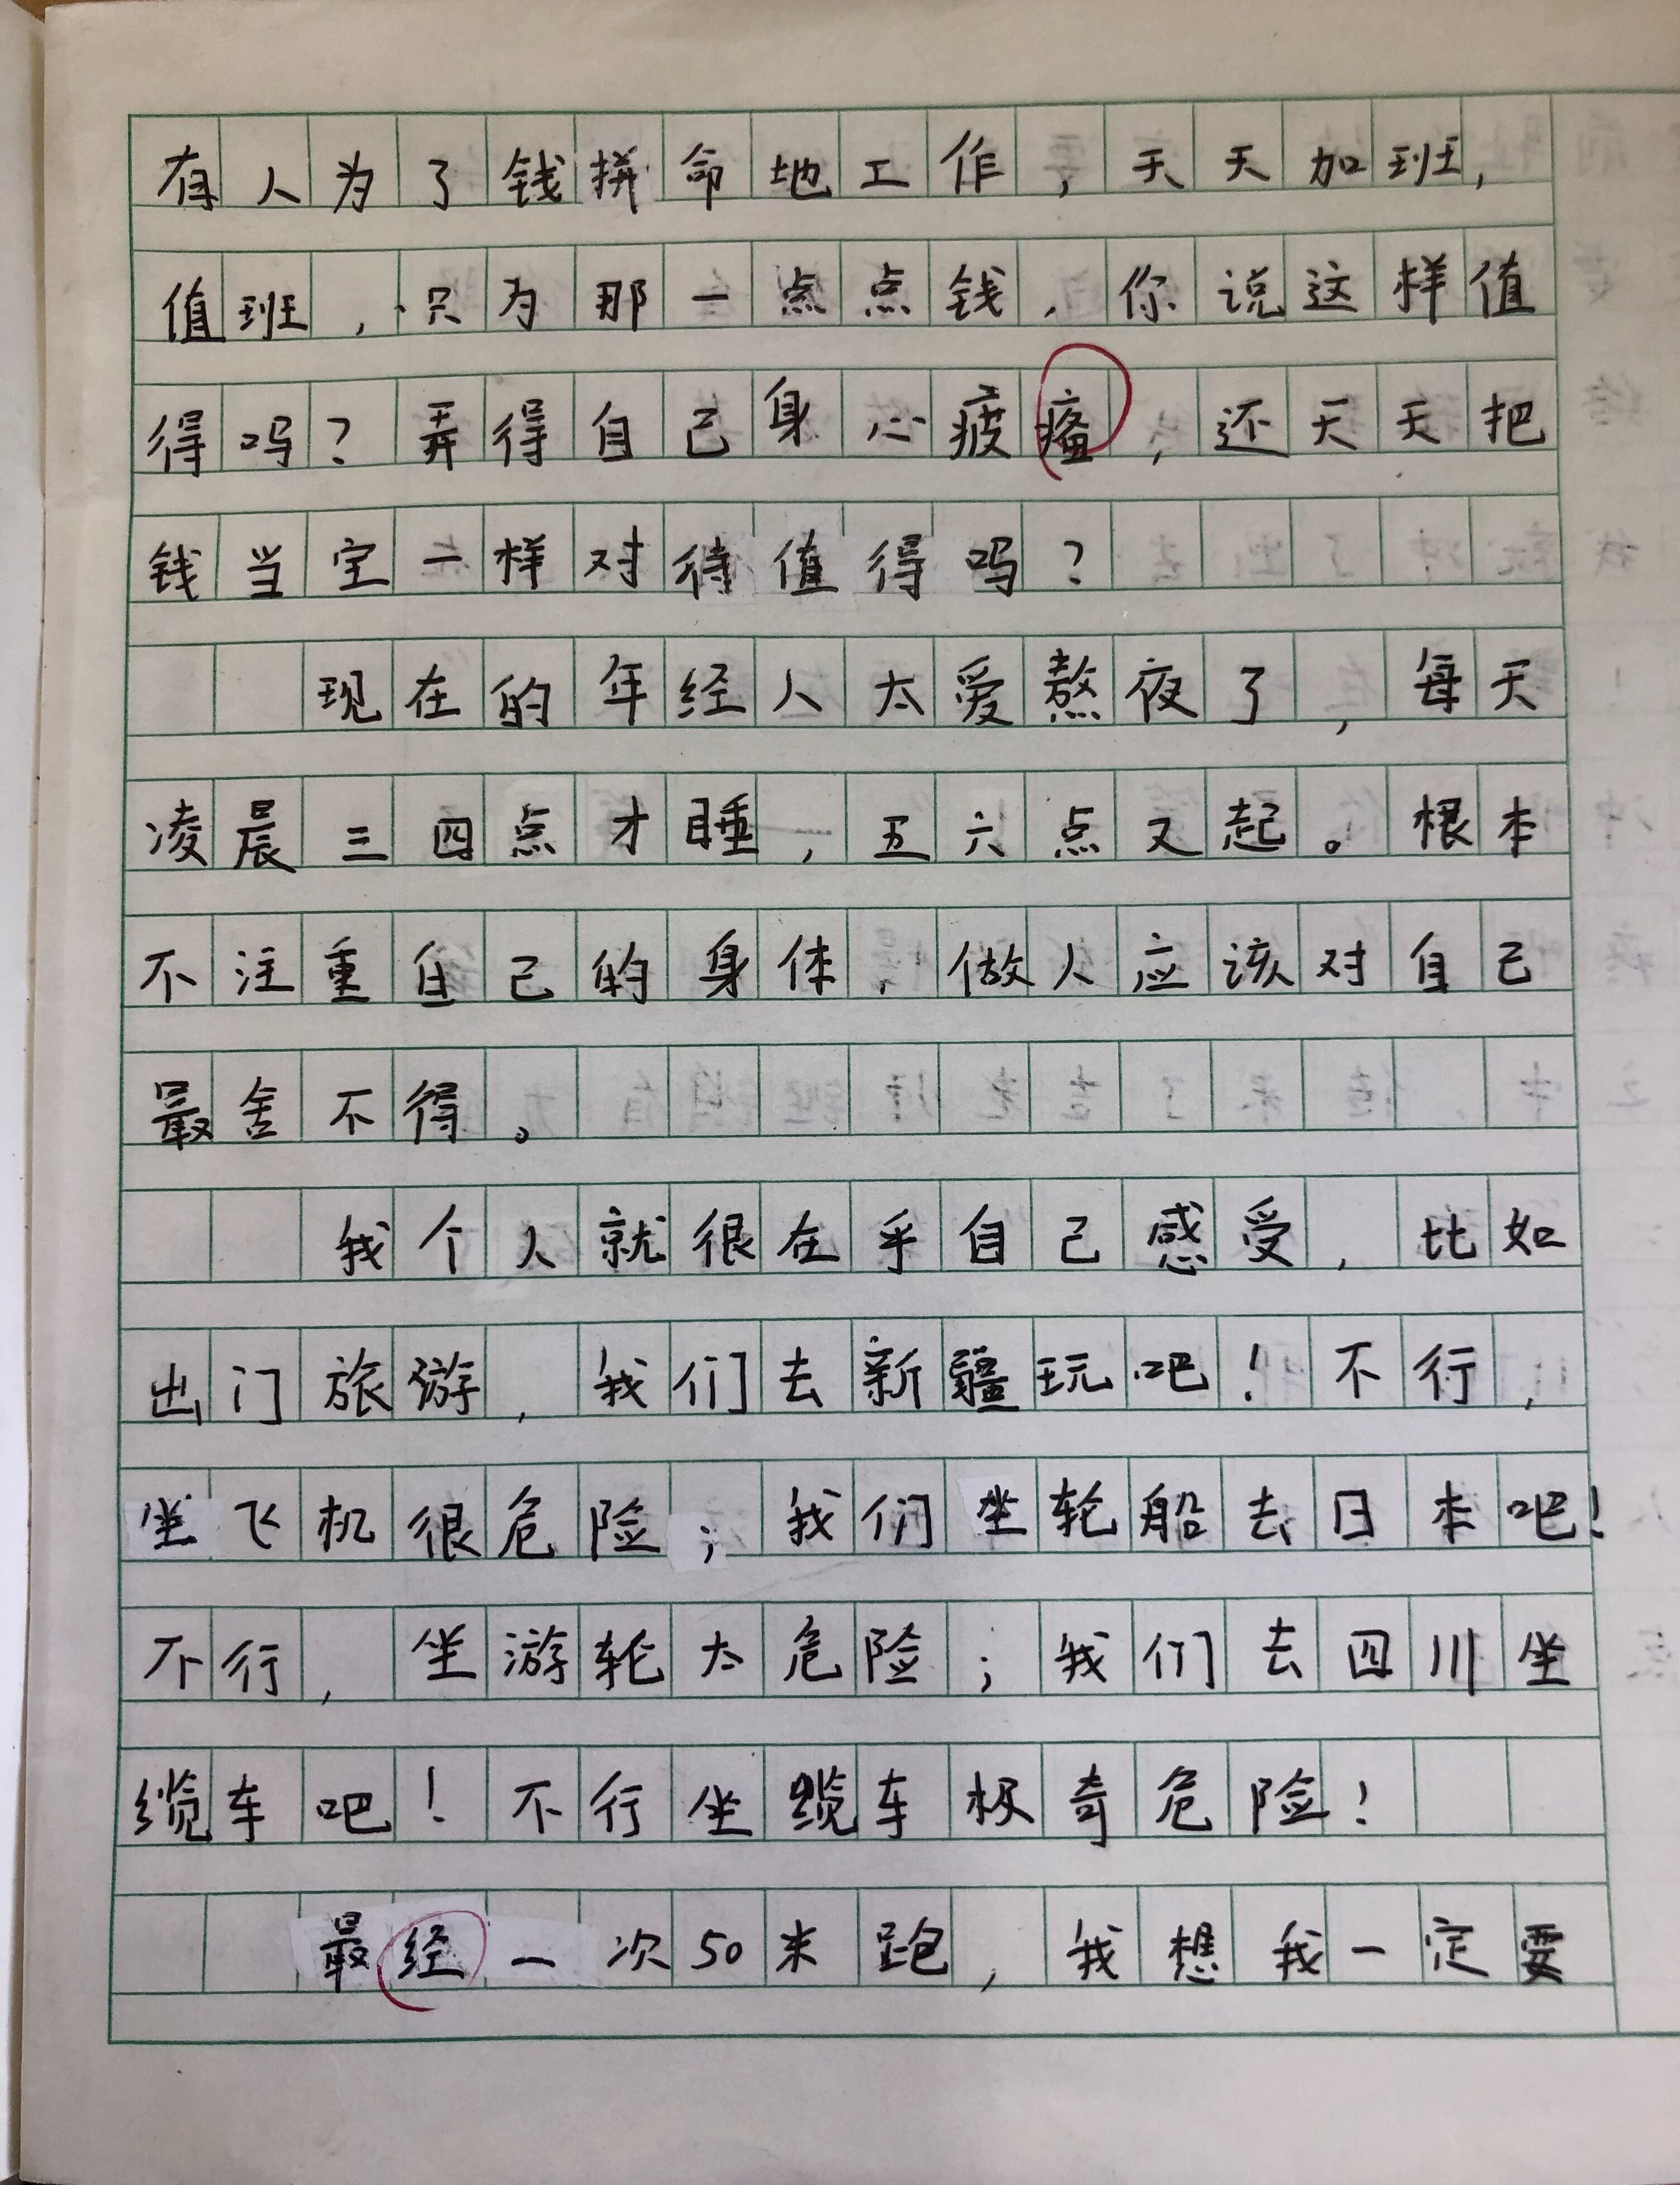 有人为了钱拼命地工作，天天加班，
值班，只为那一点点钱，你说这样值
得吗？弄得自己身心疲，还天天把
钱当宝一样对待值得吗？
现在的年经人太爱熬夜了，每天
凌晨三四点才睡，五六点又起。根本
不注重自己的身体，做人应该对自己
最舍不得。
我个人就很在乎自己感受，比如
出门旅游，我们去新疆玩吧！不行，
坐飞机很危险；我们坐轮船去日本吧！
不行，坐游轮太危险；我们去四川坐
缆车吧！不行坐缆车极奇危险！
最经一次50米跑，我想我一定要